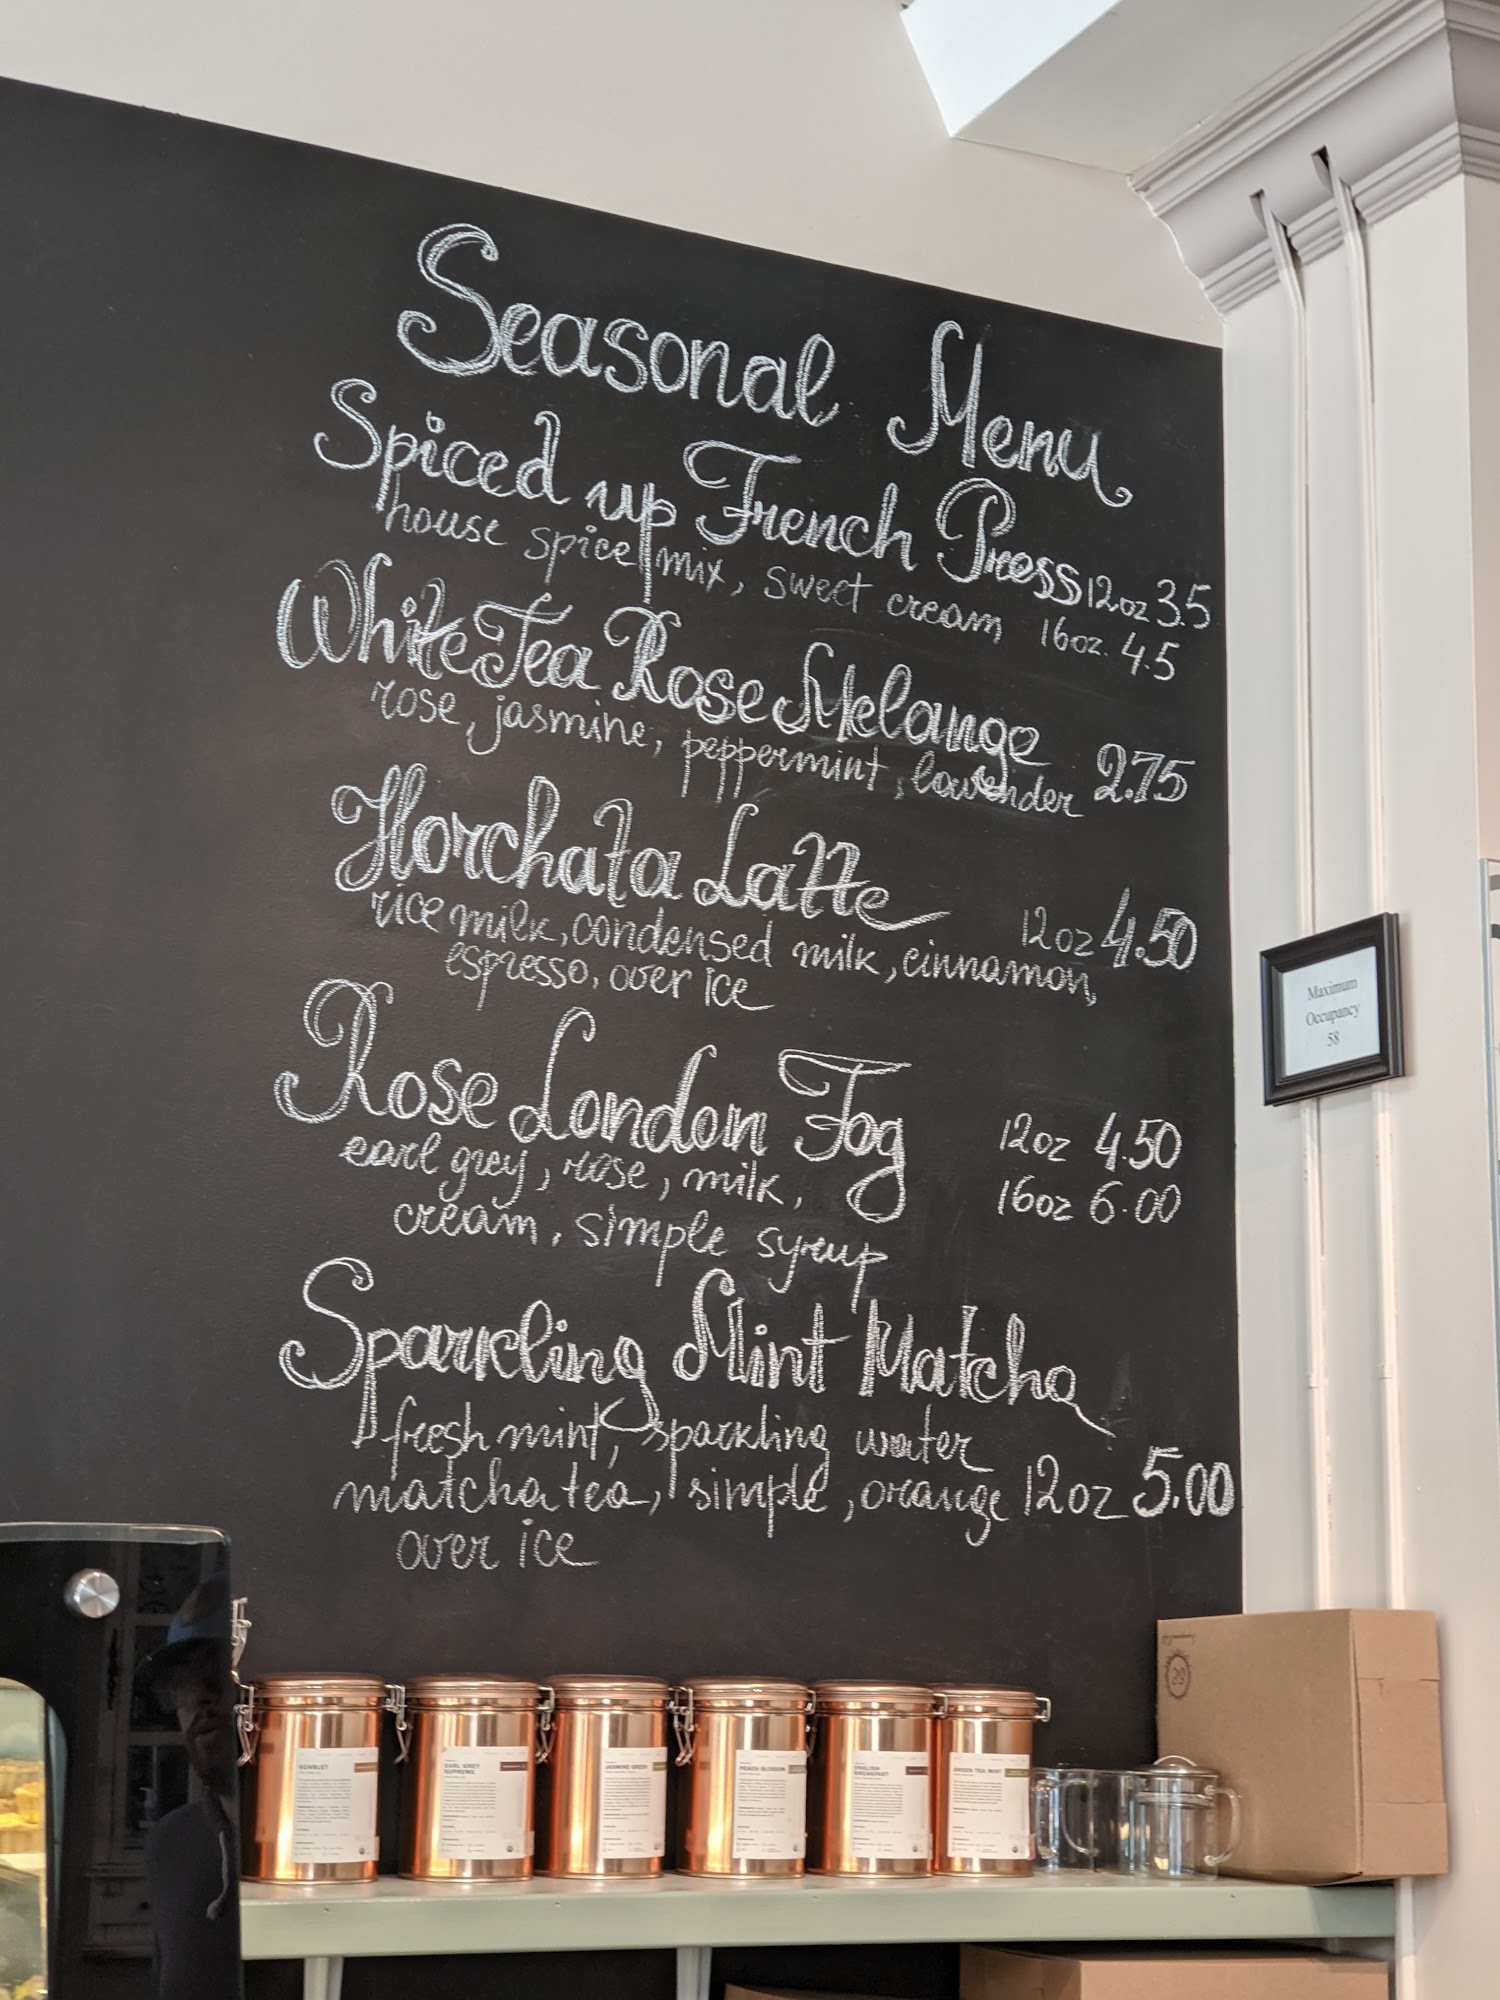 Seasonal Menu
Spiced up French Press 12oz 3.5
house spice mix, sweet cream 16oz. 4.5
White Tea Rose Melange
rose, jasmine, peppermint, lavender 2.75
Horchata Latte 12oz 4.50
rice milk, condensed milk, cinnamon,
espresso, over ice
Rose London Fog 12oz 4.50
earl grey, rose, milk, 16oz 6.00
cream, simple syrup
Sparkling Mint Matcha
fresh mint, sparkling water
matcha tea, simple, orange 12oz 5.00
over ice
Maximum
Occupancy
58
EARL GREY
SUPREME
JASMINE GREEN
PEACH BLOSSOM
ENGLISH
BREAKFAST
GREEN TEA MINT